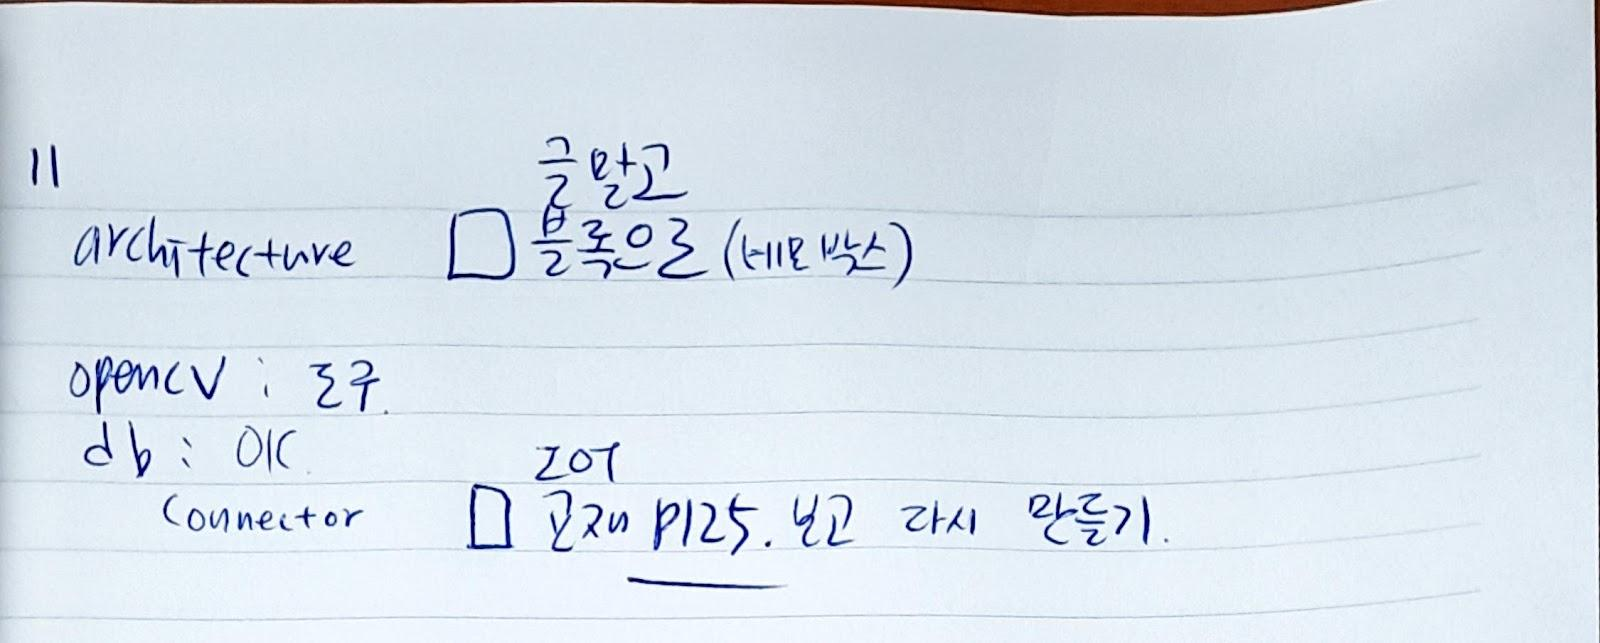 11
글 말고
architecture □ 블록으로 (네모 박스)
opencv : 도구.
db : OK.
connector □ 교재 P125. 보고 다시 만들기.